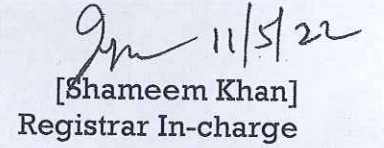 11/5/22
[Shameem Khan]
Registrar In-charge